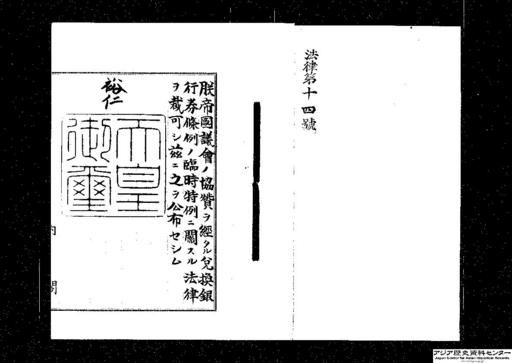 法律第十四號
朕帝國議會ノ協贊ヲ經タル兌換銀
行券條例ノ臨時特例ニ關スル法律
ヲ裁可シ茲ニ之ヲ公布セシム
裕仁
天皇
御璽
内閣
アジア歴史資料センター
Japan Center for Asian Historical Records